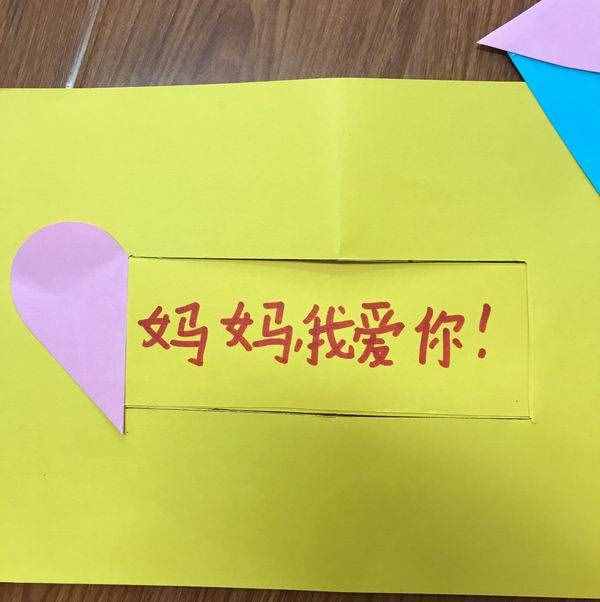 妈妈,我爱你!